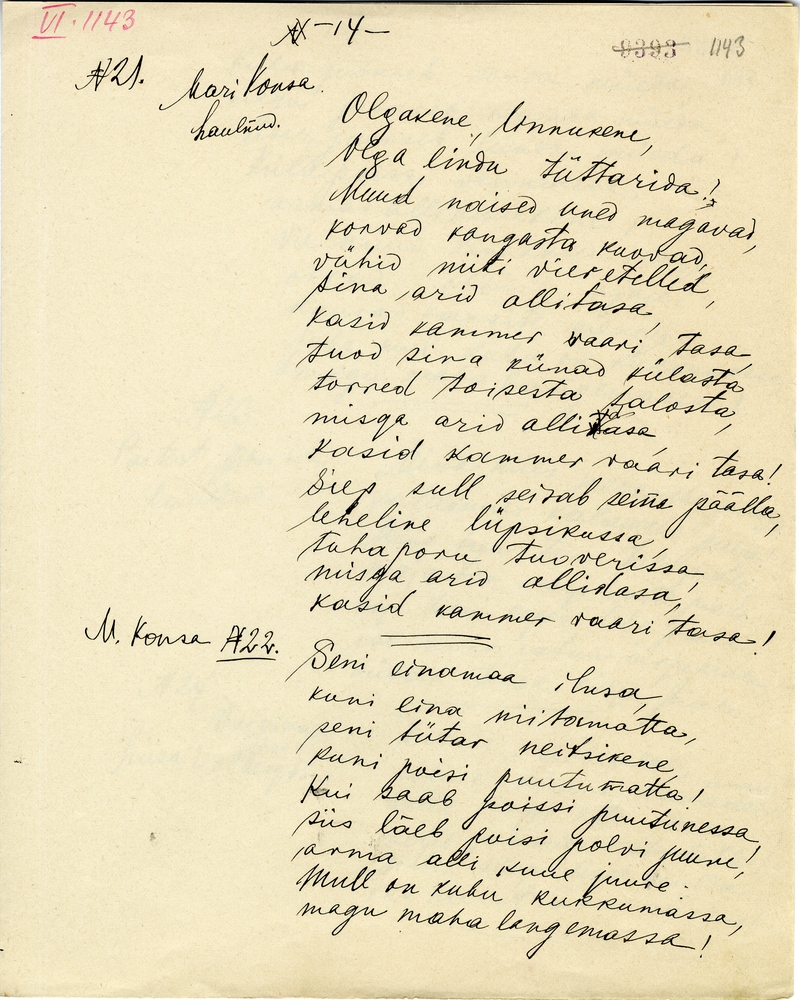 VI. 1143
N -14-
9393 1143
N21.
Mari Konsa
laulnud.
Olgakene, linnukene,
Olga lindu tüttarida!
Muud naised uned magavad,
korvad kangasta kuovad,
vühid niiti vieretelled,
sina, arid allitasa,
kasid kammer vaari tasa,
tuod sina künad külasta
torred toisesta talosta,
misga arid allitasa,
kasid kammer vaari tasa!
Siep sull seisab seina päälla,
leheline lüpsikussa,
tuhaporu tuoverissa
misga arid allidasa,
kasid kammer vaari tasa!
M. Konsa N22.
Seni einamaa ilusa,
kuni eina niitamatta,
seni tütar neitsikene,
kuni poisi puutumatta!
Kui saab poissi puutunessa,
siis läeb poisi polvi juure,
arma alli kuue juure.
Mull on kubu kukkumassa,
magu maha langemassa!